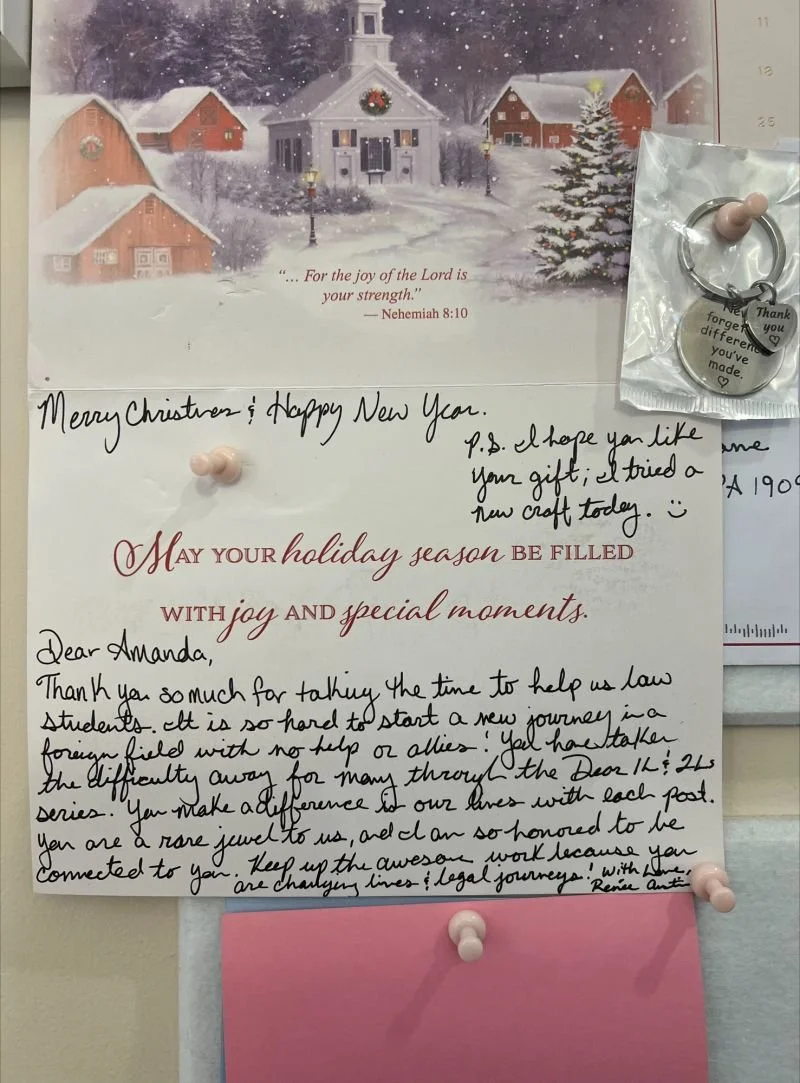 11
18
25
"... For the joy of the Lord is
your strength."
— Nehemiah 8:10
forget
difference
you've
made.
Thank
you
Merry Christmas & Happy New Year.
P.S. I hope you like
your gift; I tried a
new craft today.
PA 190
MAY YOUR holiday season BE FILLED
WITH joy AND special moments.
Dear Amanda,
Thank you so much for taking the time to help us law
students. It is so hard to start a new journey in a
foreign field with no help or allies! You have taken
the difficulty away for many through the Dear 1L & 2Ls
series. You make a difference in our lives with each post.
You are a rare jewel to us, and I am so honored to be
connected to you. Keep up the awesome work because you
are changing lives & legal journeys! With Love,
Renée